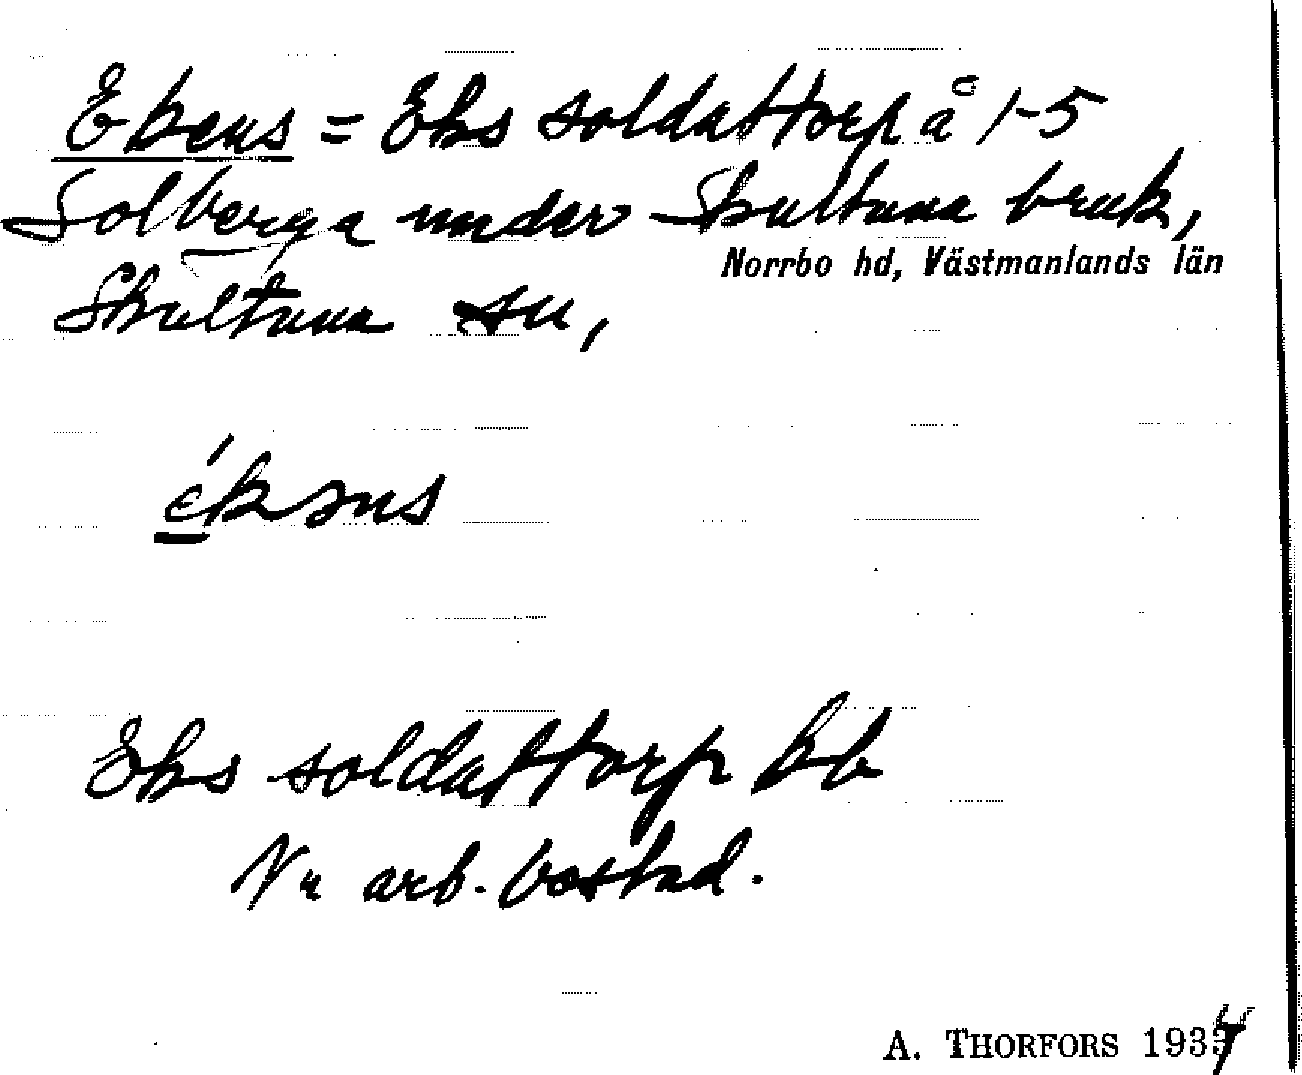 Ekens = Eks soldattorp å 1-5
Solberga under Skultuna bruk,
Norrbo hd, Västmanlands län
Skultuna sn,
ék əns
Eks soldattorp kb
Nu arb. bostad.
A. THORFORS 1934